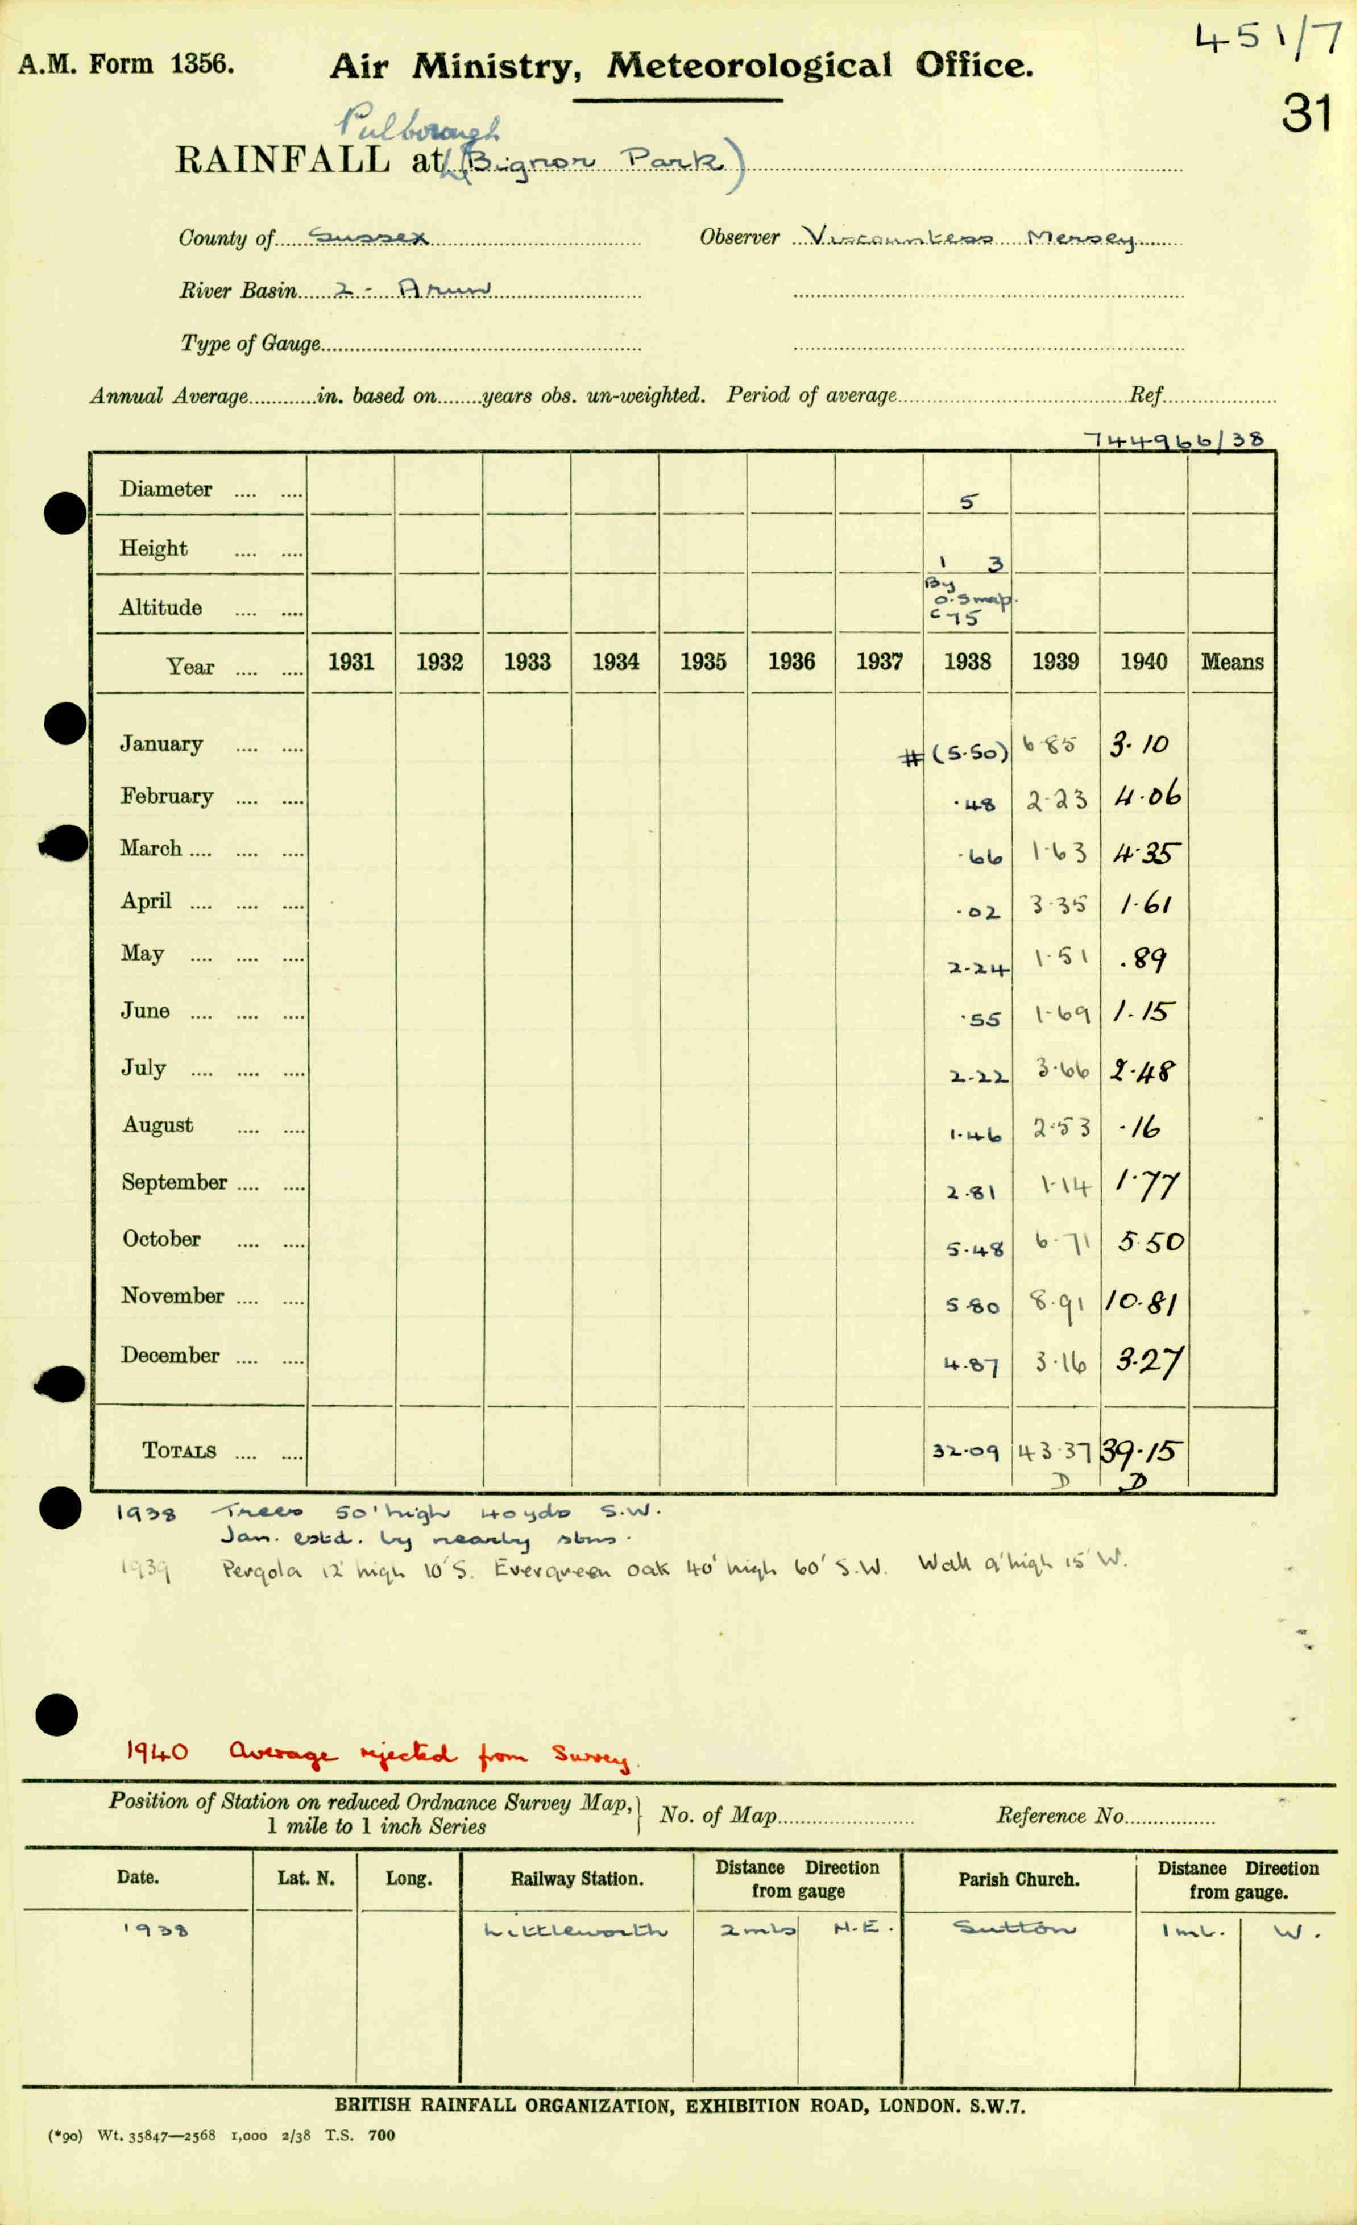 451/7
A.M. Form 1356. Air Ministry, Meteorological Office.
31
Pulborough
RAINFALL at (Bignor Park)
County of Sussex Observer Viscountess Mersey
River Basin 2 - Arun
Type of Gauge
Annual Average in. based on years obs. un-weighted. Period of average Ref.
744966/38
Diameter 5
Height 1 3
Altitude By O.S map. c 75
Year 1931 1932 1933 1934 1935 1936 1937 1938 1939 1940 Means
January # (5.50) 6.85 3.10
February .48 2.23 4.06
March .66 1.63 4.35
April .02 3.35 1.61
May 2.24 1.51 .89
June .55 1.69 1.15
July 2.22 3.66 2.48
August 1.46 2.53 .16
September 2.81 1.14 1.77
October 5.48 6.71 5.50
November 5.80 8.91 10.81
December 4.87 3.16 3.27
TOTALS 32.09 43.37 39.15
D D
1938 Trees 50' high 40 yds S.W.
Jan. estd. by nearby stns.
1939 Pergola 12' high 10' S. Evergreen oak 40' high 60' S.W. Wall 9' high 15' W.
1940 Average rejected from Survey.
Position of Station on reduced Ordnance Survey Map, 1 mile to 1 inch Series } No. of Map Reference No.
Date. Lat. N. Long. Railway Station. Distance Direction from gauge Parish Church. Distance Direction from gauge.
1938 Littleworth 2 mls N.E. Sutton 1 ml. W.
BRITISH RAINFALL ORGANIZATION, EXHIBITION ROAD, LONDON. S.W.7.
(*90) Wt. 35847—2568 1,000 2/38 T.S. 700